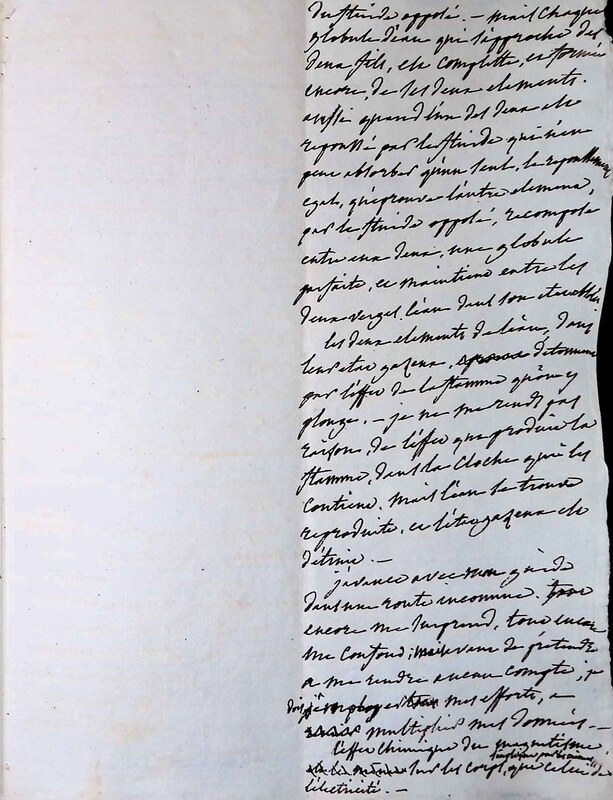 du fluide opposé. — mais chaque
globule d'eau qui s'approche des
deux fils, est complette, est formée
encore, de ses deux elements.
aussi quand l'un des deux est
repoussé par le fluide qui n'en
peut absorber qu'un seul, le repoussement
egal, qu'eprouve l'autre element,
par le fluide opposé, recompose
entre eux deux, une globule
parfaite, et maintient entre les
deux verges, l'eau dans son
les deux elements de l'eau, dans
leur etat gazeux, detonnent
par l'effet de la flamme qu'on y
plonge. — je ne me rends pas
raison, de l'effet que produit la
flamme, dans la cloche qui les
contient. mais l'eau se trouve
reproduite, et l'état gazeux est
détruit. —
j'avance avec mon guide
dans une route inconnue. tout
encore me surprend, tout encore
me confond; avant de prétendre
a me rendre aucun compte, je
dois employer mes efforts, a
multiplier mes données. —
l'effet chimique du magnetisme,
sur les corps, que celui de
l'électricité. —